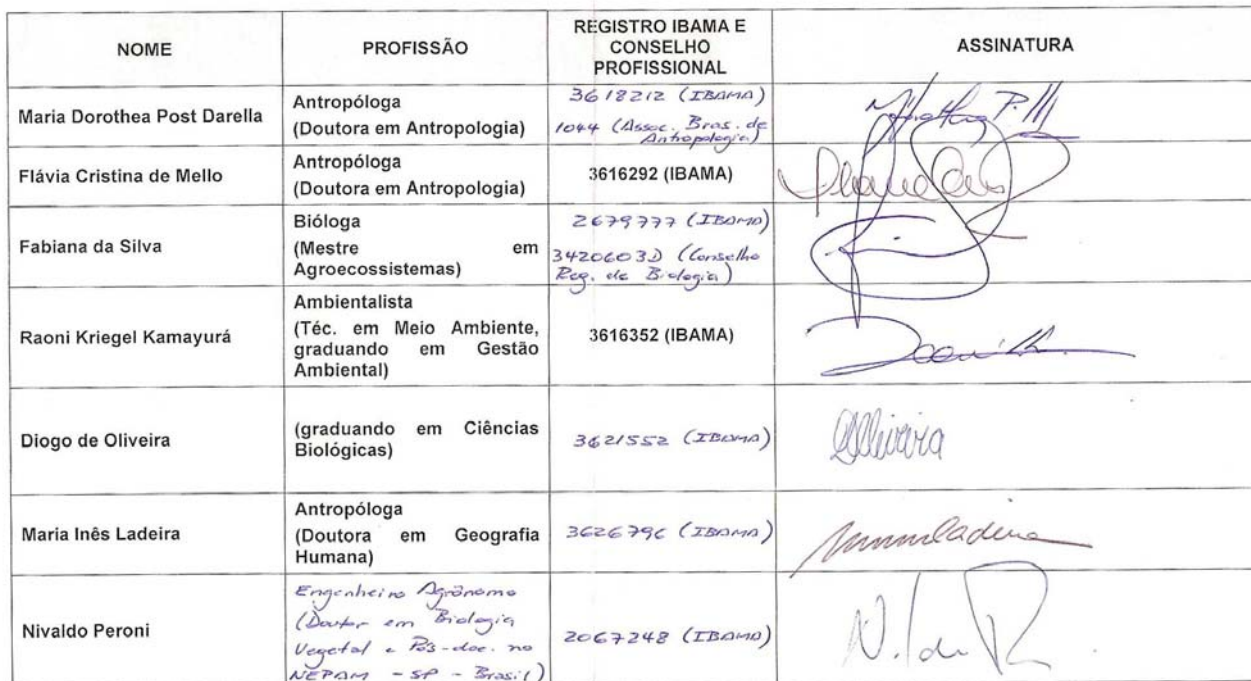 NOME
PROFISSÃO
REGISTRO IBAMA E
CONSELHO
PROFISSIONAL
ASSINATURA
Maria Dorothea Post Darella
Antropóloga
(Doutora em Antropologia)
3618212 (IBAMA)
1044 (Assoc. Bras. de
Antropologia)
Flávia Cristina de Mello
Antropóloga
(Doutora em Antropologia)
3616292 (IBAMA)
Fabiana da Silva
Bióloga
(Mestre em
Agroecossistemas)
2679777 (IBAMA)
3420603D (Conselho
Reg. de Biologia)
Raoni Kriegel Kamayurá
Ambientalista
(Téc. em Meio Ambiente,
graduando em Gestão
Ambiental)
3616352 (IBAMA)
Diogo de Oliveira
(graduando em Ciências
Biológicas)
3621552 (IBAMA)
DOliveira
Maria Inês Ladeira
Antropóloga
(Doutora em Geografia
Humana)
3626796 (IBAMA)
Nivaldo Peroni
Engenheiro Agrônomo
(Doutor em Biologia
Vegetal e Pós-doc. no
NEPAM - SP - Brasil)
2067248 (IBAMA)